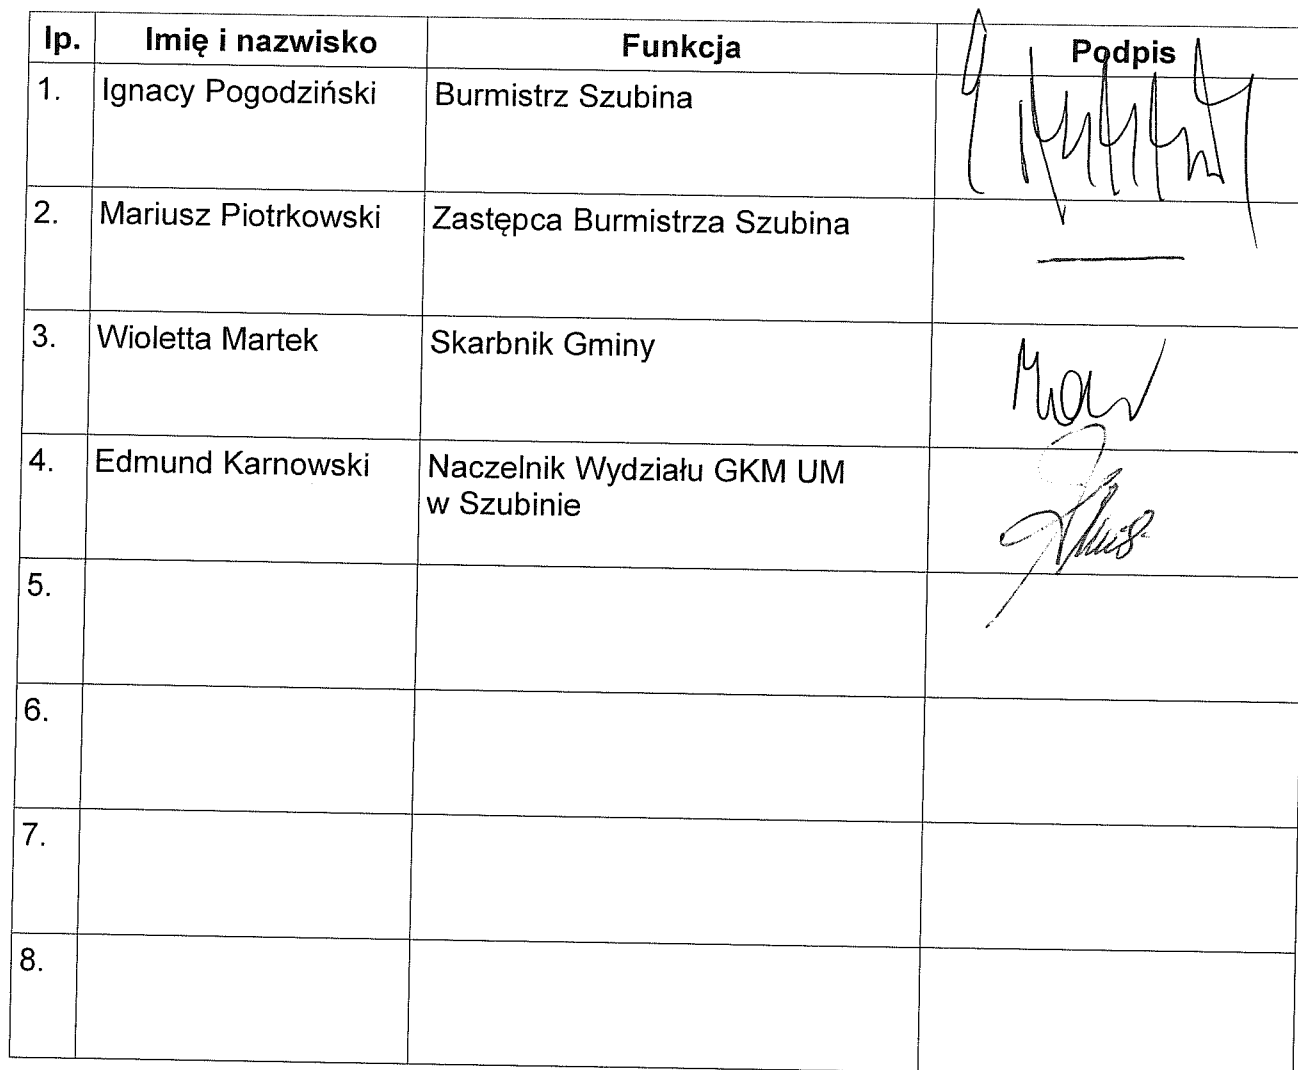 lp. Imię i nazwisko Funkcja Podpis
1. Ignacy Pogodziński Burmistrz Szubina
2. Mariusz Piotrkowski Zastępca Burmistrza Szubina
3. Wioletta Martek Skarbnik Gminy
4. Edmund Karnowski Naczelnik Wydziału GKM UM
w Szubinie
5.
6.
7.
8.